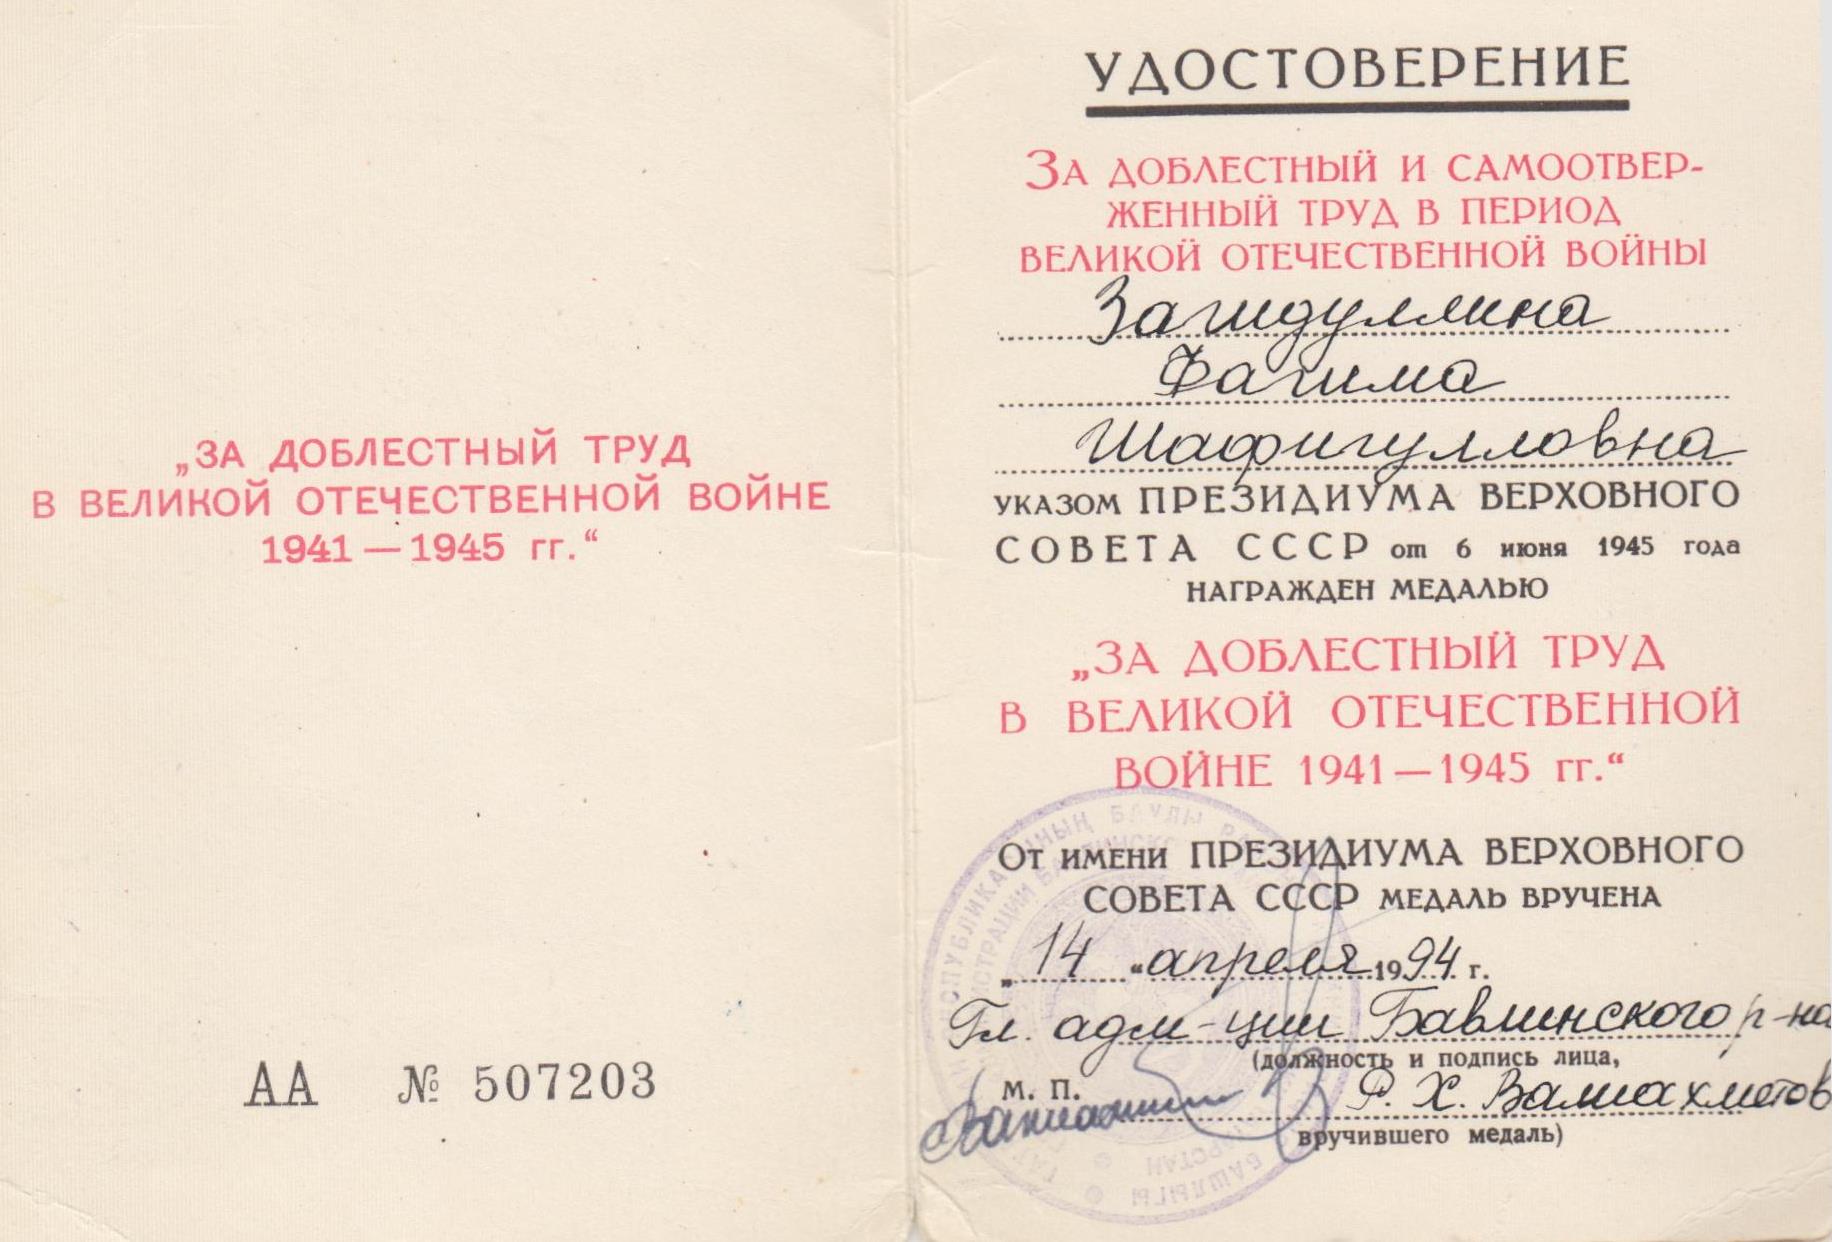 „ЗА ДОБЛЕСТНЫЙ ТРУД
В ВЕЛИКОЙ ОТЕЧЕСТВЕННОЙ ВОЙНЕ
1941 — 1945 гг.“
АА № 507203
УДОСТОВЕРЕНИЕ
За доблестный и самоотвер-
женный труд в период
Великой Отечественной войны
Загидуллина
Фагима
Шафигулловна
указом ПРЕЗИДИУМА ВЕРХОВНОГО
СОВЕТА СССР от 6 июня 1945 года
НАГРАЖДЕН МЕДАЛЬЮ
„ЗА ДОБЛЕСТНЫЙ ТРУД
В ВЕЛИКОЙ ОТЕЧЕСТВЕННОЙ
ВОЙНЕ 1941 — 1945 гг.“
От имени ПРЕЗИДИУМА ВЕРХОВНОГО
СОВЕТА СССР МЕДАЛЬ ВРУЧЕНА
„14“ апреля 1994 г.
Гл. адм-ции Бавлинского р-на
(должность и подпись лица,
М. П. Р. Х. Валиахметов
вручившего медаль)
БАУЛЫ
БАШЛЫГЫ